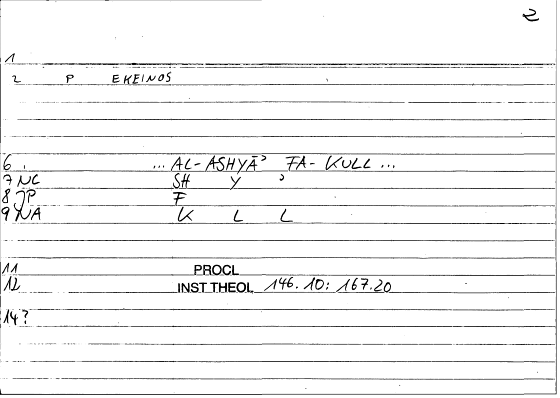 2
1
2 P EKEINOS
6 . ... AL- ASHYĀʾ FA- KULL ...
7 NC SH Y ʾ
8 JP F
9 NA K L L
11 PROCL
12 INST THEOL 146.10: 167.20
14?